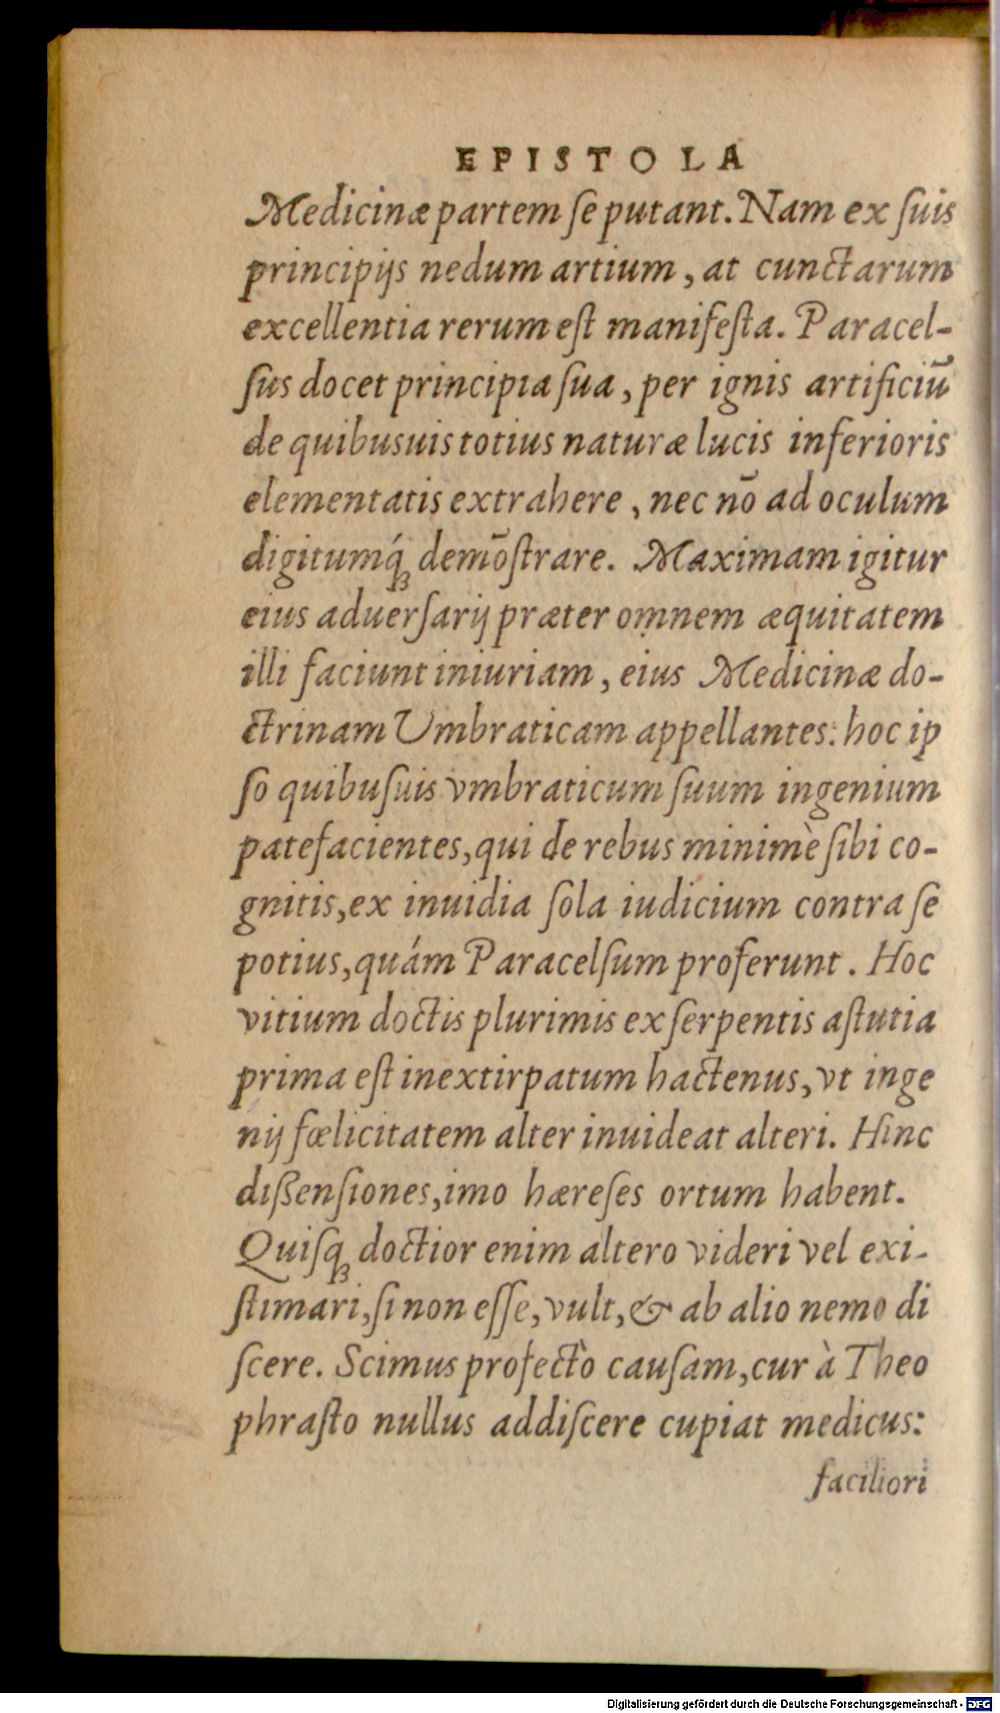 EPISTOLA
Medicinæ partem ſe putant. Nam ex ſuis
principijs nedum artium, at cunctarum
excellentia rerum eſt manifeſta. Paracel-
ſus docet principia ſua, per ignis artificiū
de quibusuis totius naturæ lucis inferioris
elementatis extrahere, nec nō ad oculum
digitumq́ꝫ demōſtrare. Maximam igitur
eius aduerſarij præter omnem æquitatem
illi faciunt iniuriam, eius Medicinæ do-
ctrinam Umbraticam appellantes: hoc ip
ſo quibuſuis vmbraticum ſuum ingenium
patefacientes, qui de rebus minimè ſibi co-
gnitis, ex inuidia ſola iudicium contra ſe
potius, quám Paracelſum proferunt. Hoc
vitium doctis plurimis ex ſerpentis aſtutia
prima eſt inextirpatum hactenus, vt inge
nij fœlicitatem alter inuideat alteri. Hinc
dißenſiones, imo hæreſes ortum habent.
Quiſqꝫ doctior enim altero videri vel exi-
ſtimari, ſi non eſſe, vult, & ab alio nemo di
ſcere. Scimus profectò cauſam, cur à Theo
phraſto nullus addiſcere cupiat medicus:
faciliori
Digitalisierung gefördert durch die Deutsche Forschungsgemeinschaft - DFG